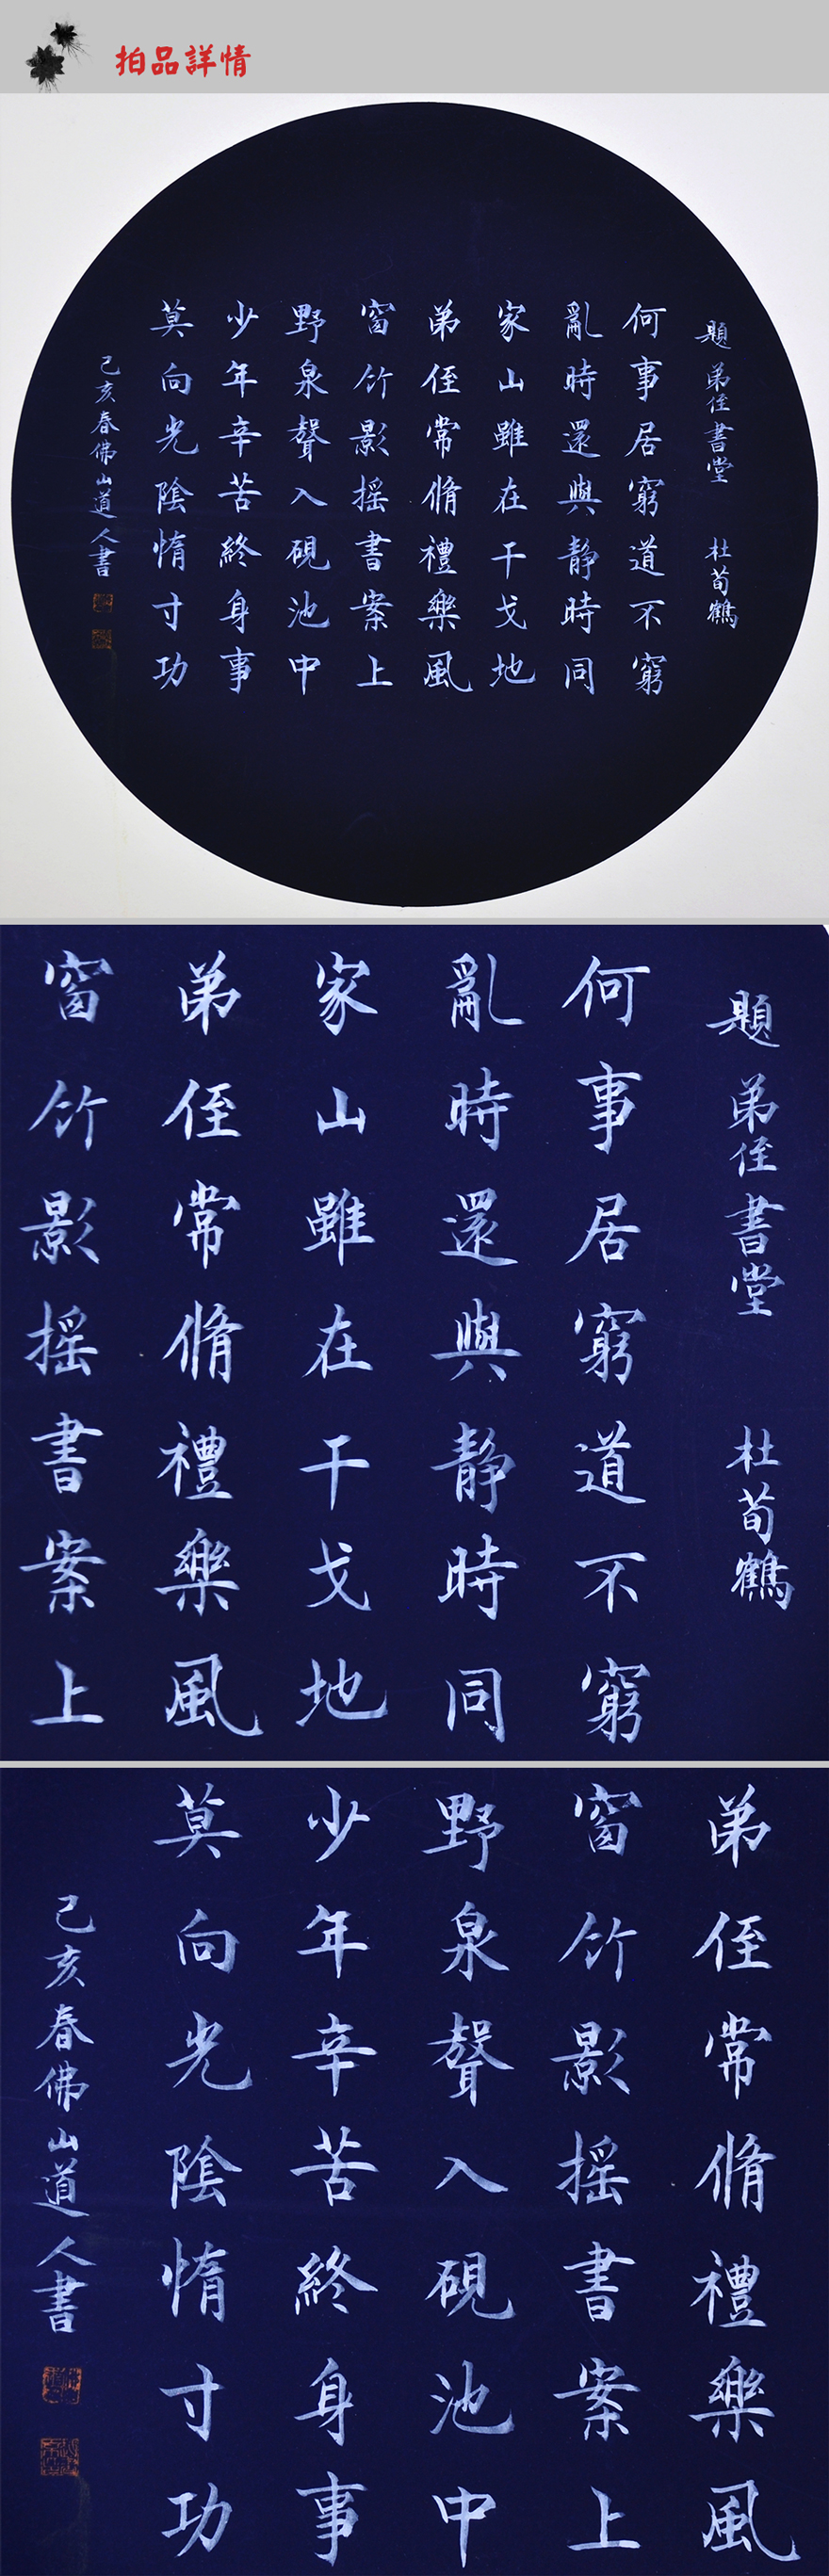 拍品詳情
題弟侄書堂 杜荀鶴
何事居窮道不窮
亂時還與靜時同
家山雖在干戈地
弟侄常脩禮樂風
窗竹影摇書案上
野泉聲入硯池中
少年辛苦終身事
莫向光陰惰寸功
己亥春佛山道人書
題弟侄書堂 杜荀鶴
何事居窮道不窮
亂時還與靜時同
家山雖在干戈地
弟侄常脩禮樂風
窗竹影摇書案上
弟侄常脩禮樂風
窗竹影摇書案上
野泉聲入硯池中
少年辛苦終身事
莫向光陰惰寸功
己亥春佛山道人書